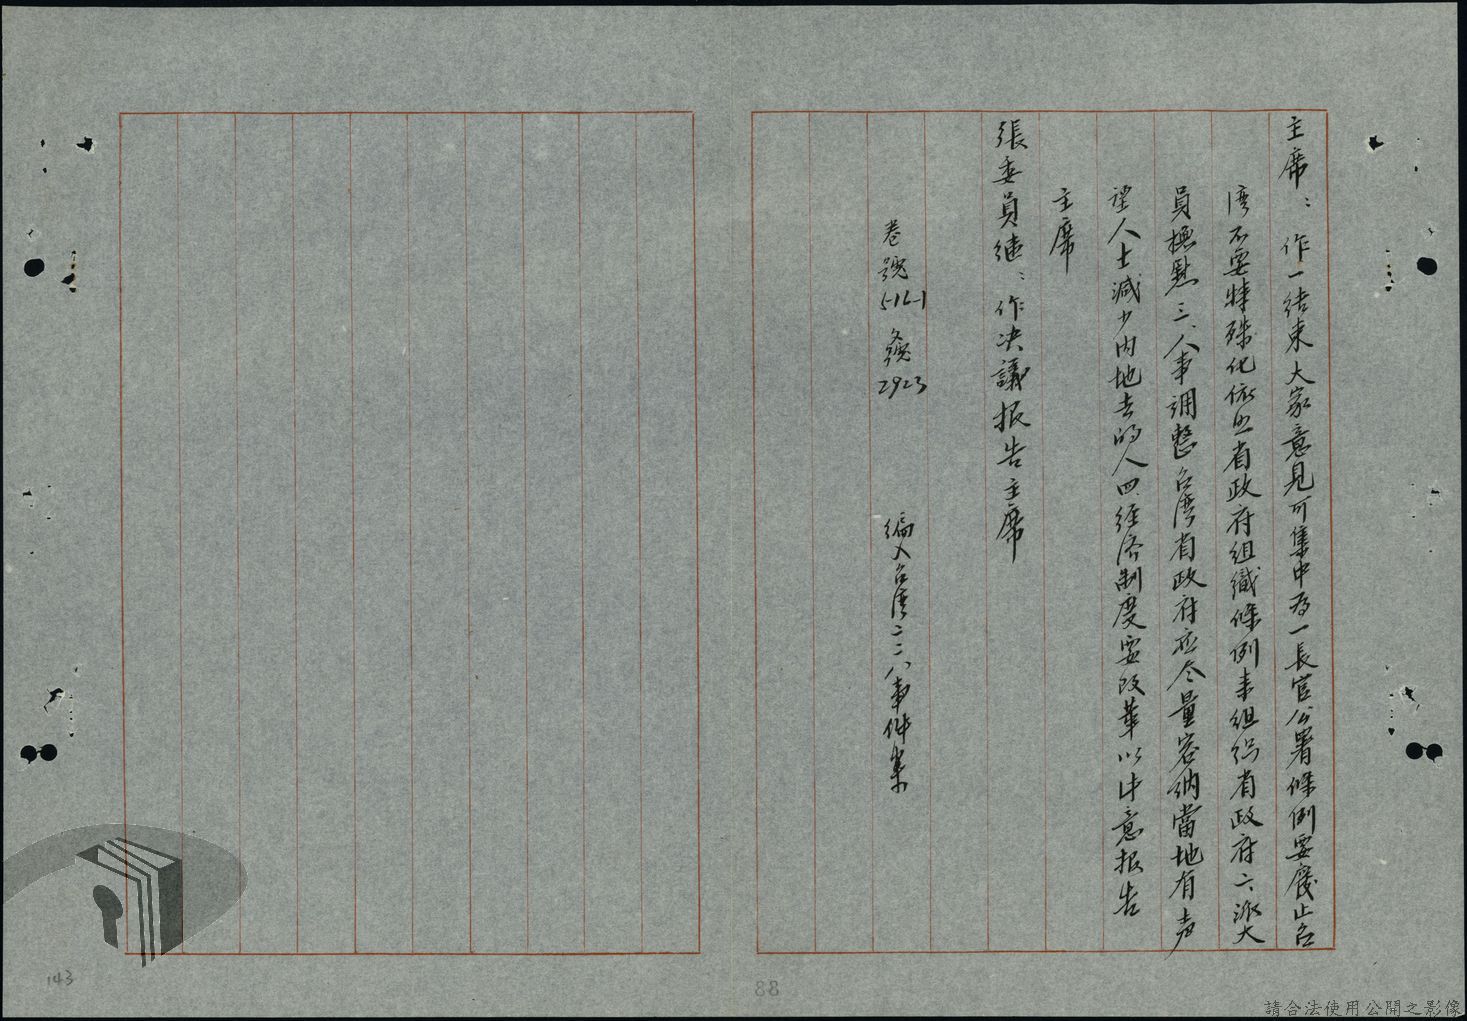 主席：作一結束大家意見可集中為一長官公署條例要廢止台
湾不要特殊化依照省政府組織條例来組織省政府二、派大
員撫慰三、人事調整台湾省政府应尽量容納當地有声
望人士減少内地去的人四、经济制度要改革以此意报告
主席
張委員继：作决議报告主席
卷號 5-16-1 號 2923 編入台湾二二八事件案
143
88
請合法使用公開之影像